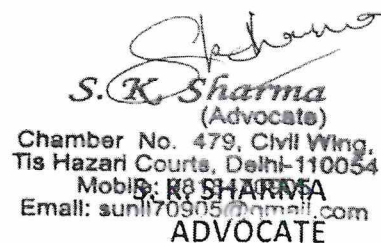 S. K. Sharma
(Advocate)
Chamber No. 479, Civil Wing,
Tis Hazari Courts, Delhi-110054
Mobile:
S. K. SHARMA
Email: sunil70905@gmail.com
ADVOCATE